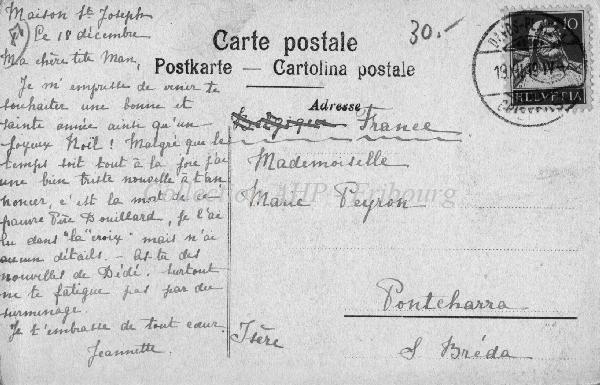 Maison St Joseph
Le 18 décembre
Ma chère tite Man,
Je m'empresse de venir te
souhaiter une bonne et
sainte année ainsi qu'un
Joyeux Noël ! Malgré que le
temps soit tout à la joie j'ai
une bien triste nouvelle à t'an
noncer, c'est la mort de ce
pauvre Père Douillard, je l'ai
lu dans "la croix" mais n'ai
aucun détails. - As-tu des
nouvelles de Dédé. Surtout
ne te fatigue pas par du
surmenage.
Je t'embrasse de tout cœur
Jeannette.
30.-
Carte postale
Postkarte — Cartolina postale
Adresse
France
Mademoiselle
Marie Peyron
Pontcharra
s Bréda
Isère
10
HELVETIA
Collection AHP Fribourg